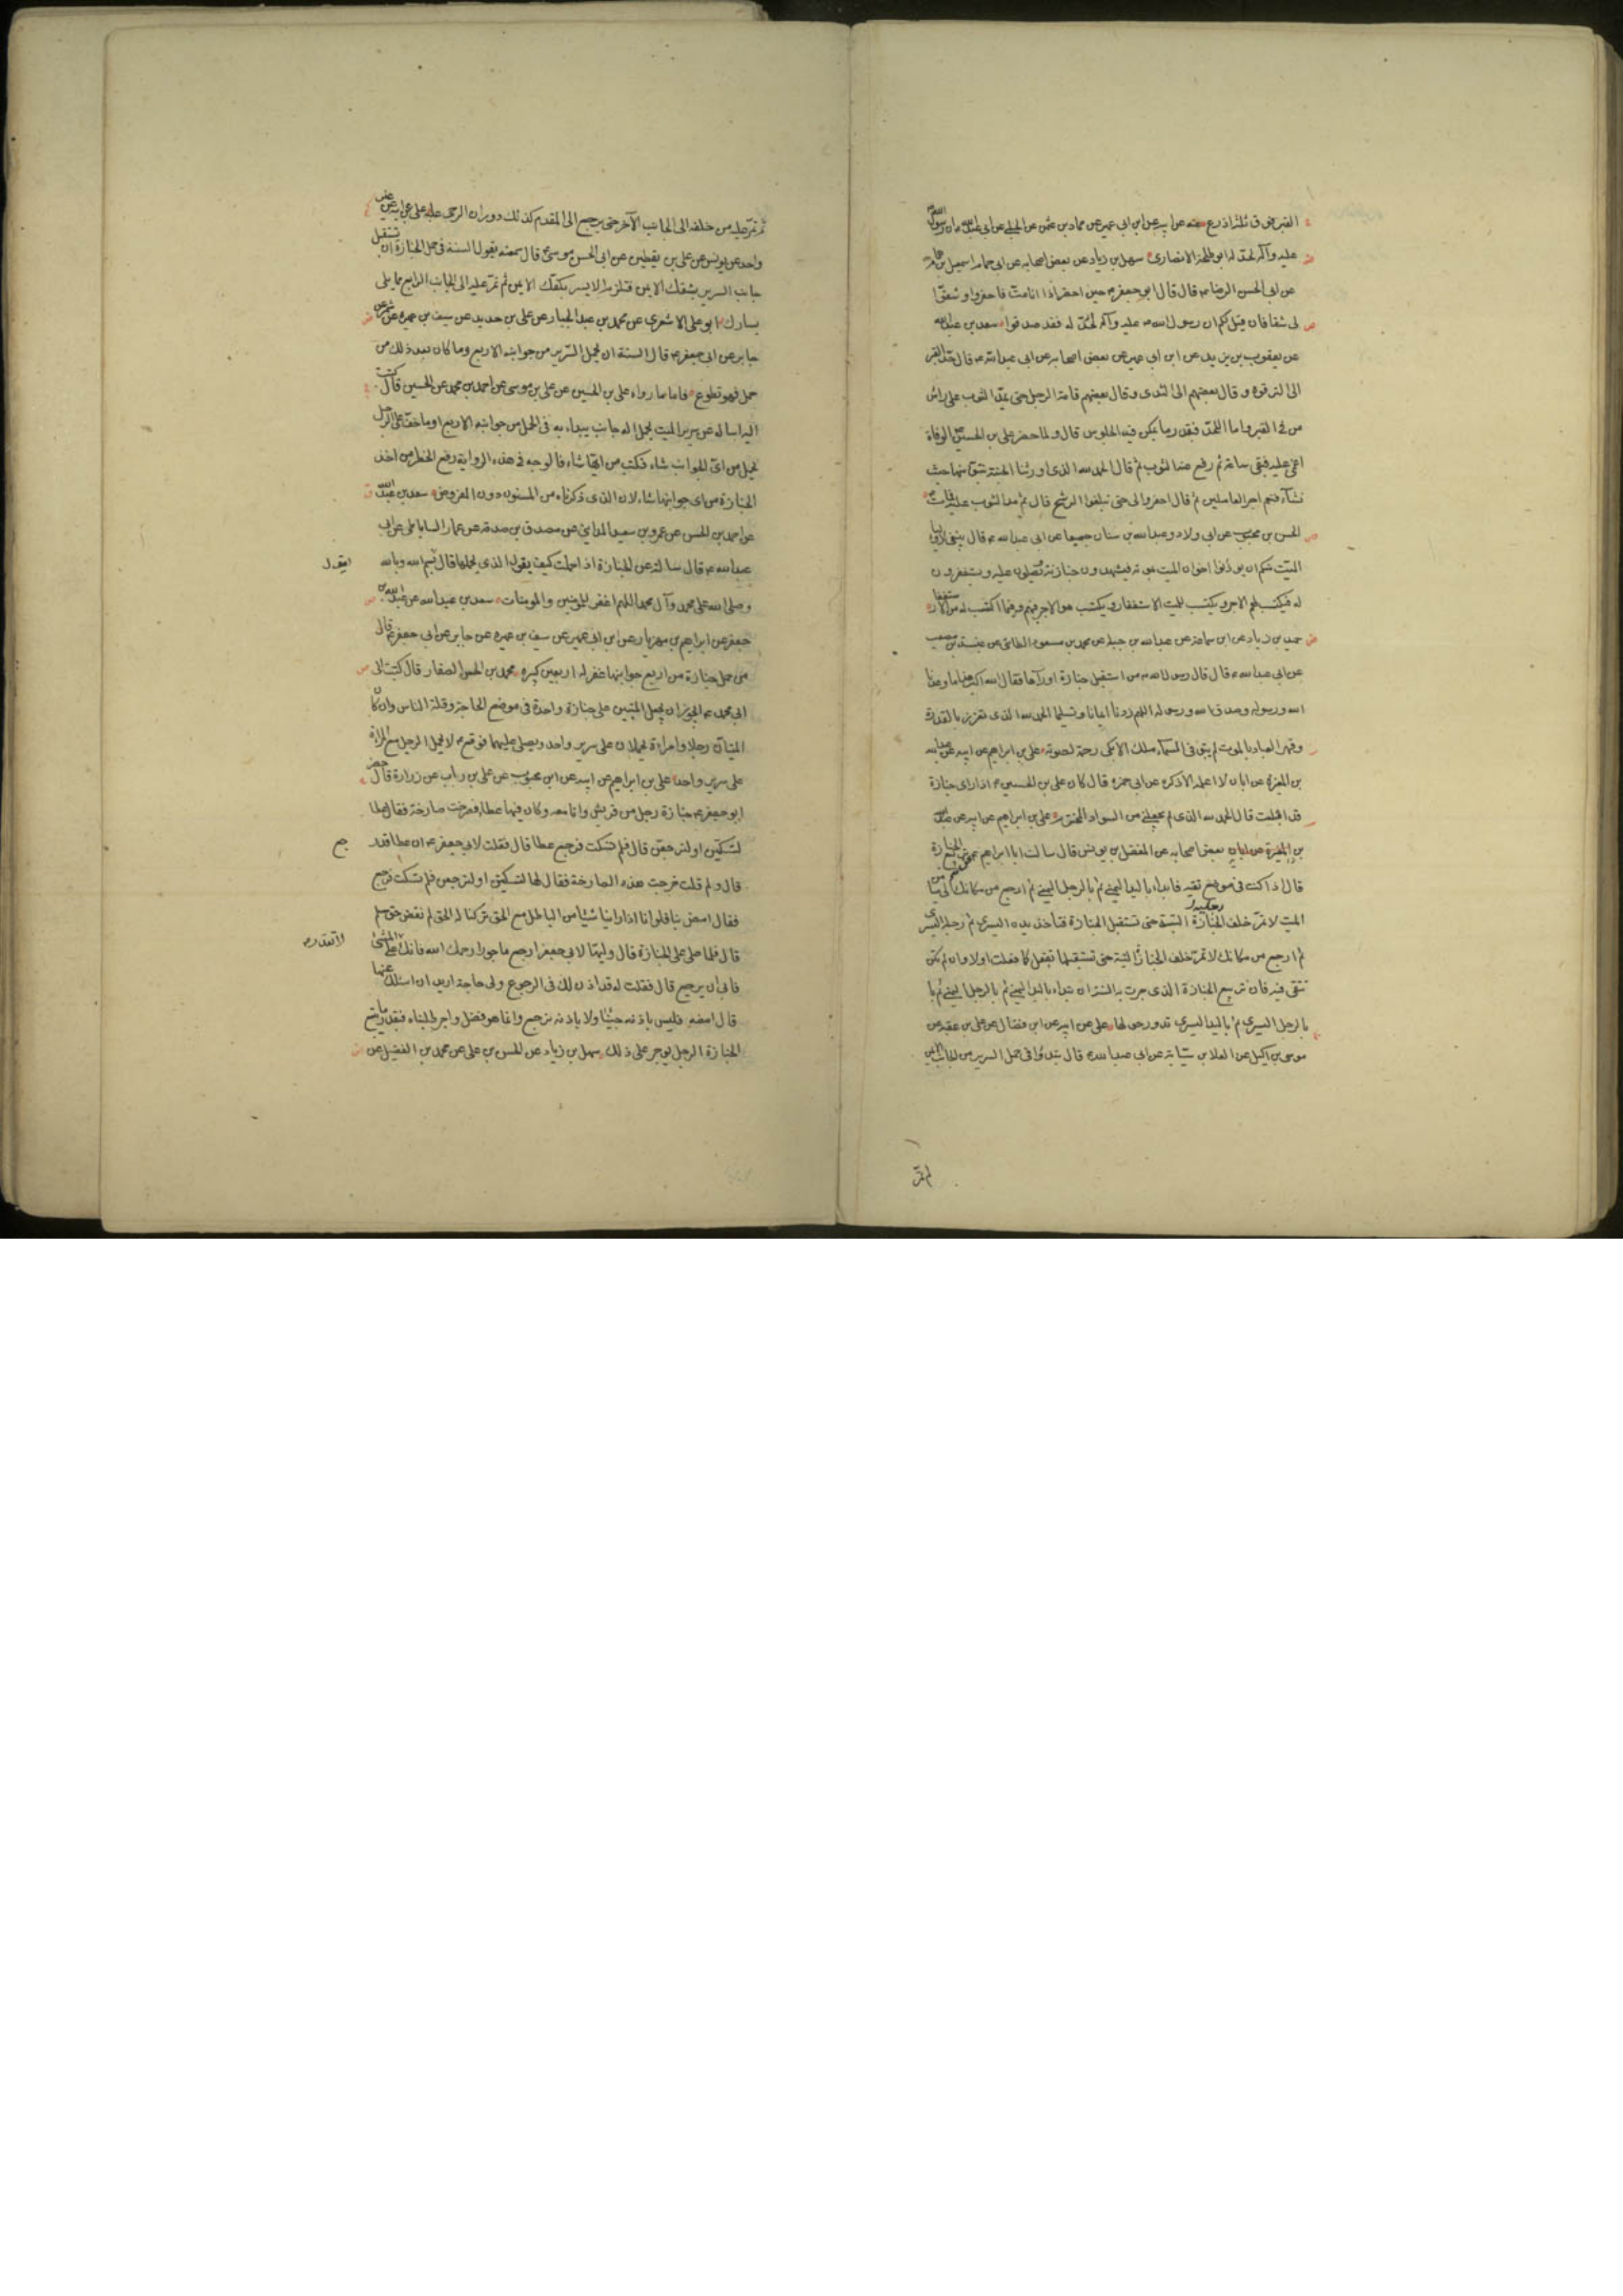 القبر فوق ثلثة اذرع عنه عن ابيه عن ابن ابي عمير عن حماد بن عثمن عن الحلبي عن ابي عبد الله ان رسول الله
عليه وآله لحد له ابو طلحة الانصاري سهل بن زياد عن بعض اصحابه عن ابي همام اسمعيل بن همام
عن ابي الحسن الرضا ع قال قال ابو جعفر ع حين احضر اذا انا مت فاحفروا وشقوا
لي شقا فان قيل لكم ان رسول الله ص عليه وآله لحد له فقد صدقوا سعد بن عبد الله
عن يعقوب بن يزيد عن ابن ابي عمير عن بعض اصحابه عن ابي عبد الله ع قال حد القبر
الى الترقوة وقال بعضهم الى الثدي وقال بعضهم قامة الرجل حتى يمد الثوب على راس
من في القبر واما اللحد فبقدر ما يمكن فيه الجلوس قال ولما حضر علي بن الحسين الوفاة
اغمي عليه فبقي ساعة ثم رفع عنه الثوب ثم قال الحمد لله الذي اورثنا الجنة نتبوا منها حيث
نشآء فنعم اجر العاملين ثم قال احفروا لي حتى تبلغوا الرشح قال ثم مد الثوب عليه فمات
الحسن بن محبوب عن ابي ولاد وعبد الله بن سنان جميعا عن ابي عبد الله ع قال ينبغي لاوليا
الميت منكم ان يوذنوا اخوان الميت بموته فيشهدون جنازته ويصلون عليه ويستغفرون
له فيكتب لهم الاجر ويكتب للميت الاستغفار ويكتب هو الاجر فيهم وفيما اكتسب له من الاستغفار
حميد بن زياد عن ابن سماعة عن عبد الله بن جبلة عن محمد بن مسعود الطائي عن عنبسة بن مصعب
عن ابي عبد الله ع قال قال رسول الله ص من استقبل جنازة او رآها فقال الله اكبر هذا ما وعدنا
الله ورسوله وصدق الله ورسوله اللهم زدنا ايمانا وتسليما الحمد لله الذي تعزز بالقدرة
وقهر العباد بالموت لم يبق في السمآء ملك الا بكى رحمة لصوته علي بن ابراهيم عن ابيه عن عبد الله
بن المغيرة عن ابان لا اعلمه الا ذكره عن ابي حمزة قال كان علي بن الحسين ع اذا راى جنازة
قد اقبلت قال الحمد لله الذي لم يجعلني من السواد المخترم علي بن ابراهيم عن ابيه عن عبد الله
بن المغيرة عن بعض اصحابه عن الفضل بن يونس قال سالت ابا ابراهيم ع عن تربيع الجنازة
قال اذا كنت في موضع تقية فابدا باليد اليمنى ثم بالرجل اليمنى ثم ارجع من مكانك الى ميامن
الميت لا تمر خلف رجليه البتة حتى تستقبل الجنازة فتاخذ يده اليسرى ثم رجله اليسرى
ثم ارجع من مكانك لا تمر خلف الجنازة البتة حتى تستقبلها تفعل كما فعلت اولا وان لم تكن
تتقي فيه فان تربيع الجنازة الذي جرت به السنة ان تبدا باليد اليمنى ثم بالرجل اليمنى ثم با
بالرجل اليسرى ثم باليد اليسرى تدور حولها علي عن ابيه عن ابن فضال عن علي بن عقبة عن
موسى بن اكيل عن العلا بن سيابة عن ابي عبد الله ع قال تبدوا في حمل السرير من الجانب الايمن
ثم تمر
ثم تمر عليه من خلفه الى الجانب الآخر حتى يرجع الى المقدم كذلك دوران الرحى عليه علي عن ابيه عن غير
واحد عن يونس عن علي بن يقطين عن ابي الحسن موسى ع قال سمعته يقول السنة في حمل الجنازة ان تستقبل
جانب السرير بشقك الايمن فتلزم الايسر بكفك الايمن ثم تمر عليه الى الجانب الرابع مما يلي
يسارك ابو علي الاشعري عن محمد بن عبد الجبار عن علي بن حديد عن سيف بن عميرة عن عمرو بن شمر عن
جابر عن ابي جعفر ع قال السنة ان يحمل السرير من جوانبه الاربع وما كان بعد ذلك من
حمل فهو تطوع فاما ما رواه علي بن الحسين عن علي بن موسى عن احمد بن محمد عن الحسين قال كتبت
اليه اساله عن سرير الميت يحمل اله جانب يبداء به في الحمل من جوانبه الاربع او ما خف على الرجل
يحمل من اي الجوانب شاء فكتب من ايها شاء فالوجه في هذه الرواية رفع الحظر من اخذ
الجنازة من اي جوانبها شاء لان الذي ذكرناه من المسنون دون المفروض سعد بن عبد الله
عن احمد بن الحسن عن عمرو بن سعيد المدايني عن مصدق بن صدقة عن عمار الساباطي عن ابي
عبد الله ع قال سالته عن الجنازة اذا حملت كيف يقول الذي يحملها قال بسم الله وبالله
يقول
وصلى الله على محمد وآل محمد اللهم اغفر للمؤمنين والمومنات سعد بن عبد الله عن عبد الله بن
جعفر عن ابراهيم بن مهزيار عن ابن ابي عمير عن سيف بن عميرة عن جابر عن ابي جعفر ع قال
من حمل جنازة من اربع جوانبها غفر له اربعين كبيرة محمد بن الحسن الصفار قال كتبت الى
ابي محمد ع ايجوز ان يجعل الميتين على جنازة واحدة في موضع الحاجة وقلة الناس وان كان
الميتان رجلا وامراءة يحملان على سرير واحد ويصلى عليهما فوقع ع لا يحمل الرجل مع المراة
على سرير واحد علي بن ابراهيم عن ابيه عن ابن محبوب عن علي بن رياب عن زرارة قال حضر
ابو جعفر ع جنازة رجل من قريش وانا معه وكان فيها عطا فصرخت صارخة فقال عطا
لتسكتن او لنرجعن قال فلم تسكت فرجع عطا قال فقلت لابي جعفر ع ان عطا قد
رجع
قال ولم قلت صرخت هذه الصارخة فقال لها لتسكتن او لنرجعن فلم تسكت فرجع
فقال امض بنا فلو انا اذا راينا شيئا من الباطل مع الحق تركنا له الحق لم نقض حق مسلم
قال فلما صلى على الجنازة قال وليها لابي جعفر ارجع ماجورا رحمك الله فانك لا تقدر على المشي
لا تقدر
فابى ان يرجع قال فقلت له قد اذن لك في الرجوع ولي حاجة اريد ان اسئلك عنها
قال امضه فليس باذنه جئنا ولا باذنه نرجع وانما هو فضل واجر طلبناه فبقدر ما يتبع
الجنازة الرجل يوجر على ذلك سهل بن زياد عن الحسن بن علي عن محمد بن الفضيل عن